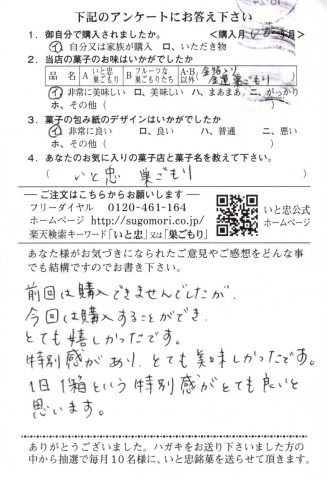 下記のアンケートにお答え下さい
1. 御自分で購入されましたか。 <購入月 月>
イ、自分又は家族が購入 ロ、いただき物
2. 当店の菓子のお味はいかがでしたか
品名 A いと忠巣ごもり B フルーツな巣ごもりたち A・B以外 金箔入り金運巣ごもり
イ、非常に美味しい ロ、美味しい ハ、まあまあ ニ、がっかり
ホ、その他( )
3. 菓子の包み紙のデザインはいかがでしたか
イ、非常に良い ロ、良い ハ、普通 ニ、悪い
ホ、その他( )
4. あなたのお気に入りの菓子店と菓子名を教えて下さい。
( いと忠 巣ごもり )
ご注文はこちらからお願いします
フリーダイヤル 0120-461-164
ホームページ http://sugomori.co.jp/
楽天検索キーワード「いと忠」又は「巣ごもり」
いと忠公式
ホームページ
あなた様がお気づきになられたご意見やご感想をどんな事
でも結構ですのでお書き下さい。
前回は購入できませんでしたが、
今回は購入することができ、
とても嬉しかったです。
特別感があり、とても美味しかったです。
1日1箱という特別感がとても良いと
思います。
ありがとうございました。ハガキをお送り下さいました方の
中から抽選で毎月10名様に、いと忠銘菓を送らせて頂きます。